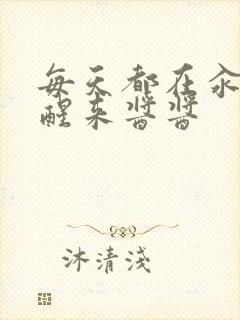 每天都在汆
醒来酱酱
沐清淺